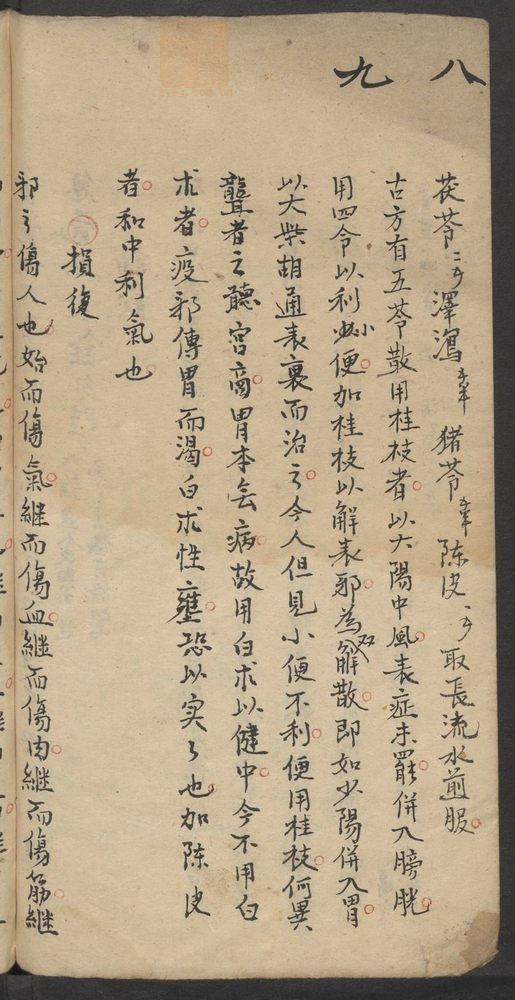 八
九
茯苓二錢 澤瀉錢半 猪苓錢半 陳皮一錢 取長流水煎服
古方有五苓散用桂枝者以太陽中風表症未罷併入膀胱
用四令以利小便加桂枝以解表邪為双解散即如少陽併入胃
以大柴胡通表裏而治之今人但見小便不利便用桂枝何異
聾者之聽宮商胃本無病故用白朮以健中今不用白
朮者疫邪傳胃而渴白朮性壅恐以实实也加陳皮
者和中利氣也
損復
邪之傷人也始而傷氣継而傷血継而傷肉継而傷筋継